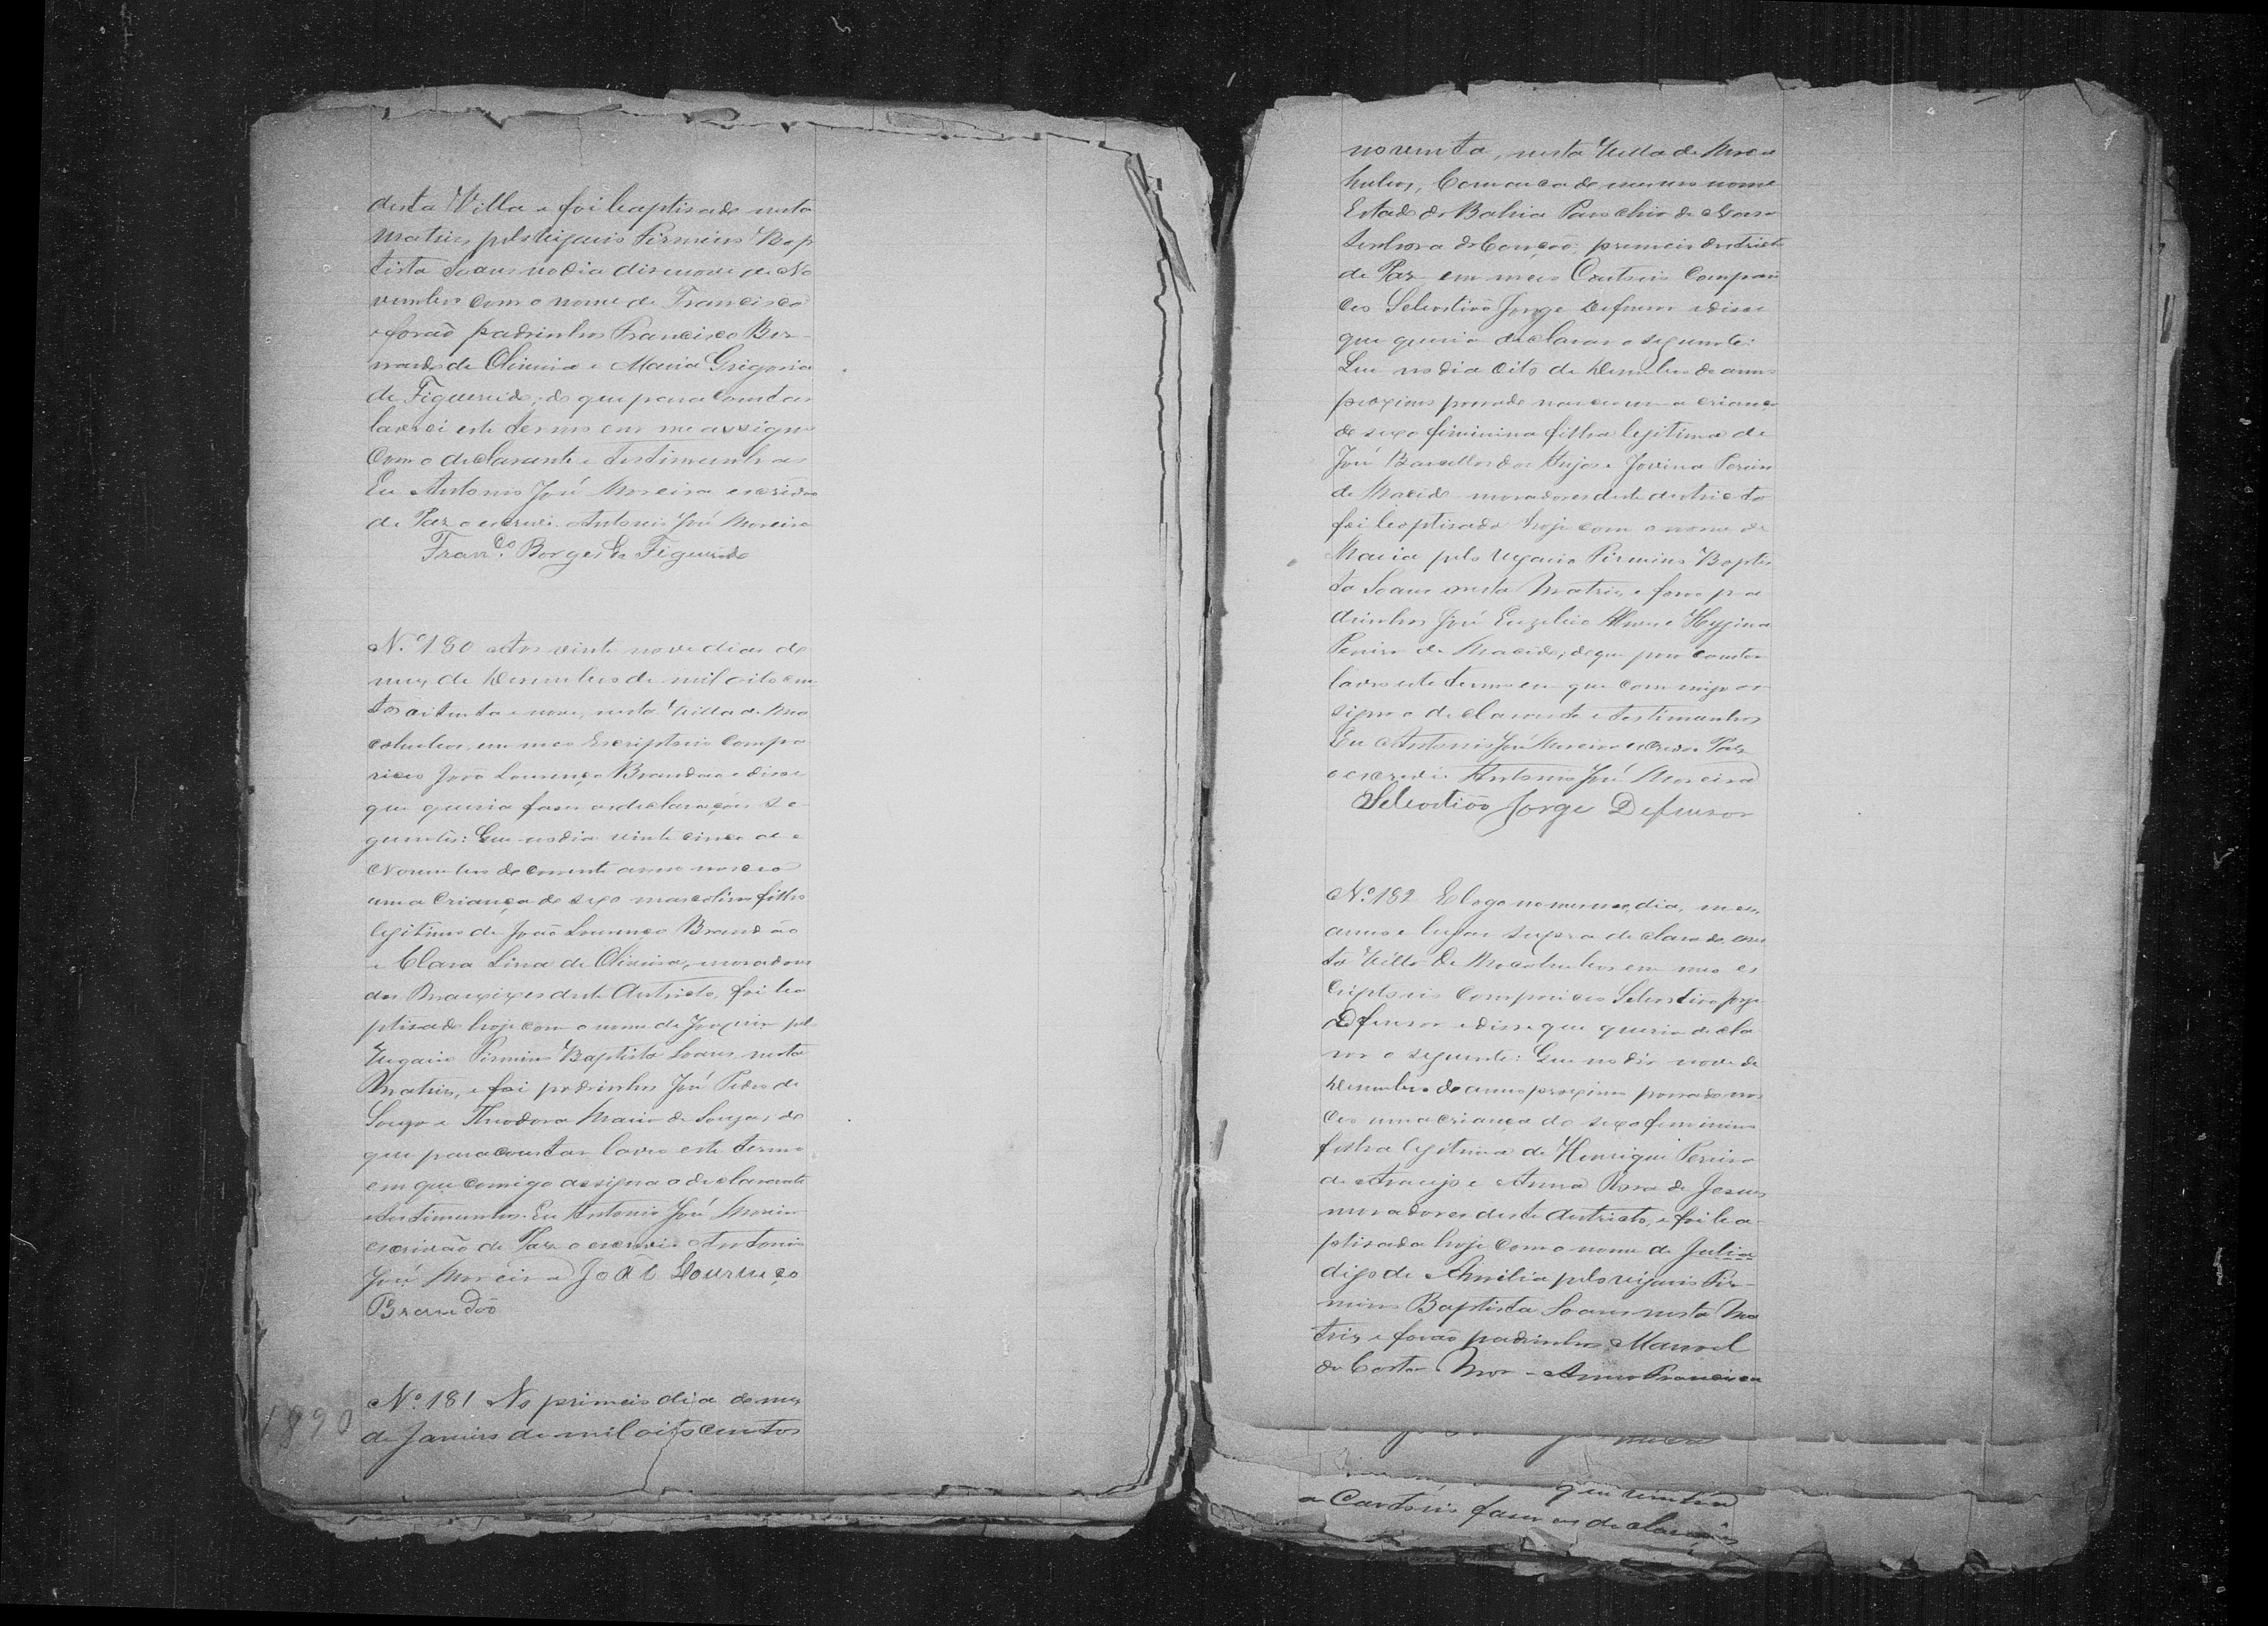 desta Villa e foi baptisado nesta
Matris pelo Vigario Firmino Bap
tista Soares no dia disenove de No
vembro com o nome de Francisco
e forão padrinhos Francisco Ber-
nardo de Oliveira e Maria Grigoria
de Figueredo; do que para constar
lavrei este termo em me assigno
com o declarante e testimunhas
Eu Antonio José Moreira escrivão
de Paz o escrevi. Antonio José Moreira
Fran.co Borges de Figueredo
Nº 180 Aos vinte nove dias do
mez de Desembro de mil oito cen
tos oitenta e nove, nesta Villa de Ma
cahubas, em meo Escriptorio compa
riceo João Lourenço Brandão e disse
que queria faser as declarações se-
guintes: Que no dia vinte cinco de
Novembro do corrente anno nasceo
uma criança do sexo mascolino filho
legitimo de João Lourenço Brandão
e Clara Lina de Oliveira, moradores
dos deste destricto, foi ba
ptisado hoje com o nome de Joaquim pelo
Vigario Firmino Baptista Soares, nesta
Matris, e foi padrinhos José Pedro de
Souza e Theodora Maria de Souza; do
que para constar lavro este termo
em que comigo assigna o declarante
e testimunhas. Eu Antonio José Moreira
escrivão de Paz o escrevi. Antonio
José Moreira João Lourenço
Brandão
1890
Nº 181 No primeiro dia do mez
de Janeiro de mil oitocentos
noventa, nesta Villa de Maca
hubas, Comarca do mesmo nome
Estado da Bahia Parochia de Nossa
Senhora da Conção: primeiro destricto
de Paz em meo Cartorio compari
ceo Sebastião Jorge Defensor e disse
que queria declarar o seguinte:
Que no dia oito de Desembro do anno
proximo passado nasceo uma criança
do sexo fiminina filha legitima de
José Barcellos dos Anjos e Jovina Pereira
de Macedo moradores deste destricto
foi baptisada hoje com o nome de
Maria pelo Vigario Firmino Baptis
ta Soares nesta Matris, e forão pa
drinhos José Alves e Hygina
Pereira de Macedo; do que para constar
lavro este termo em que commigo as
signa o declarante e testimunhas
Eu Antonio José Moreira escrivão Paz
o escrevi. Antonio José Moreira
Sebastião Jorge Defensor
Nº 182 E logo no mesmo dia, mez,
anno e lugar supra declarado, nes
ta Villa de Macahubas em meo es
criptorio compariceo Sebastião Jorge
Defensor e disse que queria decla
rar o seguinte: Que no dia nove de
Desembro do anno proximo passado nas
ceo uma criança do sexo feminino
filha legitima de Henrique Pereira
de Araujo e Anna Rosa de Jesus
moradores deste destricto, e foi ba-
ptisada hoje com o nome de Julia
digo de Amilia pelo vigario Fir-
mino Baptista Soares nesta Ma
tris e forão padrinhos Manoel
da Costa Anna Francisca
que
a Cartorio faser as declarações